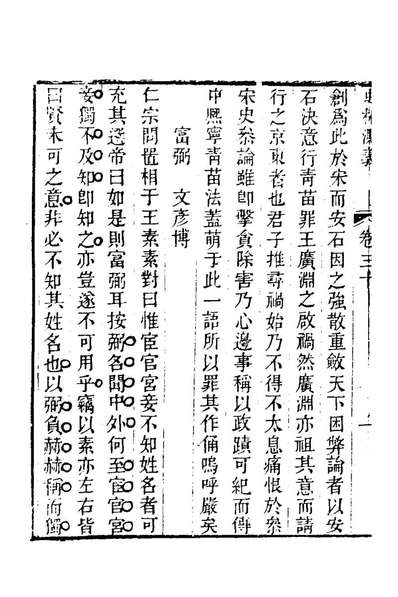 卷三十
創為此於宋而安石因之強散重斂天下困弊論者以安
石決意行青苗罪王廣淵之啟禍然廣淵亦祖其意而請
行之京東者也君子推尋禍始乃不得不太息痛恨於叅
宋史叅論雖卽擊貪除害乃心邊事稱以政蹟可紀而傳
中熙寧青苗法蓋萌于此一語所以罪其作俑嗚呼嚴矣
富弼　文彥博
仁宗問置相于王素素對曰惟宦官宮妾不知姓名者可
充其選帝曰如是則富弼耳按弼名聞中外何至宦官宮
妾獨不及知卽知之亦豈遂不可用乎竊以素亦左右皆
曰賢未可之意非必不知其姓名也以弼負赫赫稱而獨